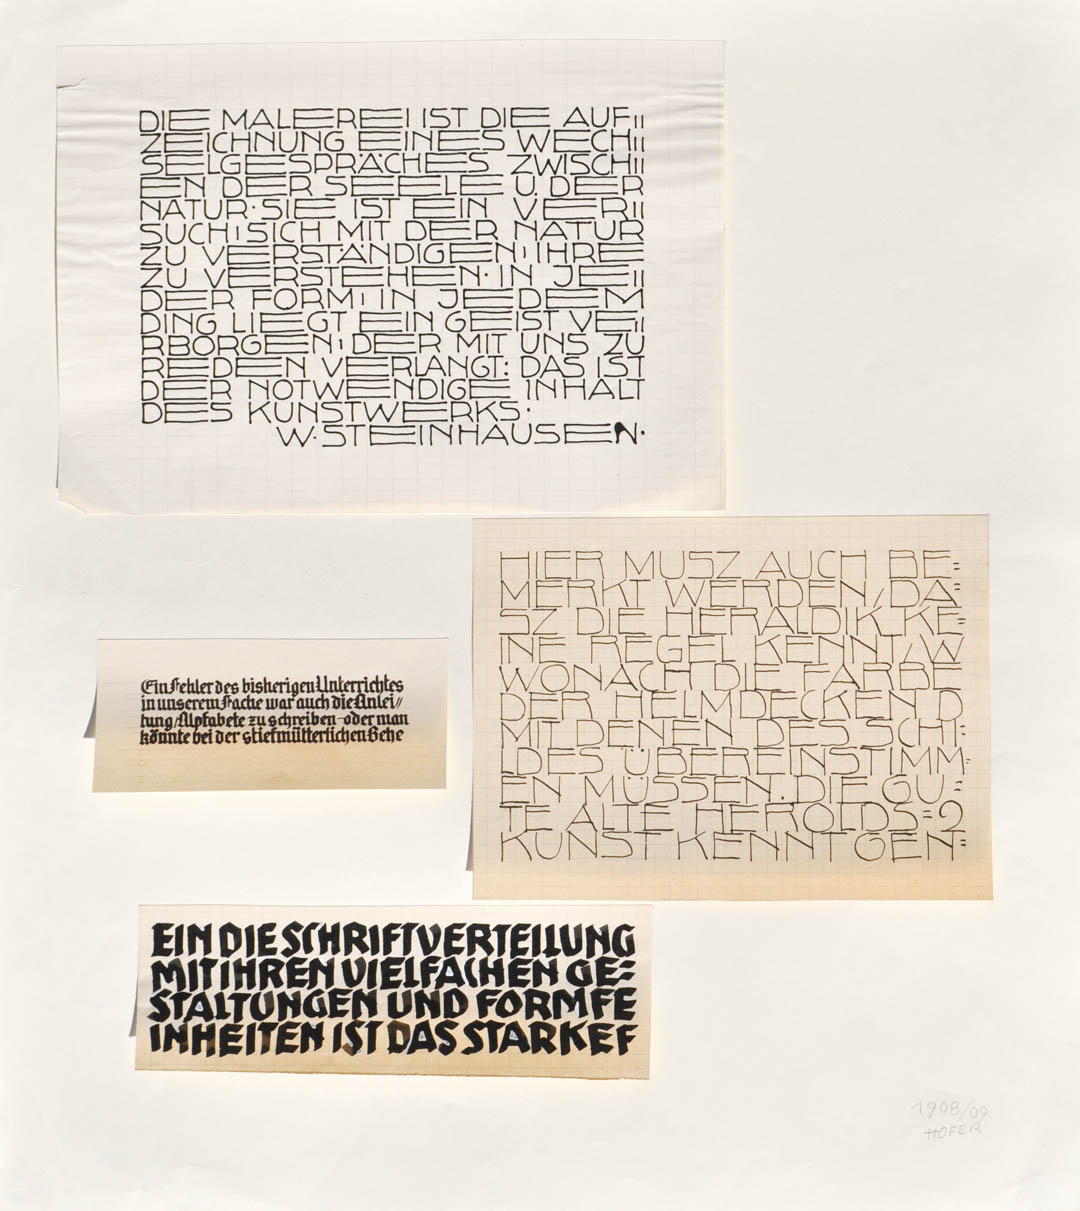 DIE MALEREI IST DIE AUF=
ZEICHNUNG EINES WECH=
SELGESPRÄCHES ZWISCH=
EN DER SEELE U. DER
NATUR· SIE IST EIN VER=
SUCH, SICH MIT DER NATUR
ZU VERSTÄNDIGEN, IHRE
ZU VERSTEHEN· IN JE=
DER FORM, IN JEDEM
DING LIEGT EIN GEIST VE=
RBORGEN, DER MIT UNS ZU
REDEN VERLANGT: DAS IST
DER NOTWENDIGE INHALT
DES KUNSTWERKS·
W·STEINHAUSEN·
HIER MUSZ AUCH BE=
MERKT WERDEN, DA=
SZ DIE HERALDIK KE=
INE REGEL KENNT, W
WONACH DIE FARBE
DER HELMDECKEN D
MIT DENEN DES SCHI
LDES ÜBEREINSTIMM=
EN MÜSSEN. DIE GU=
TE ALTE HEROLDS=
KUNST KENNT GEN=
Ein Fehler des bisherigen Unterrichtes
in unserem Fache war auch die Anlei//
tung/Alpfabete zu schreiben-oder man
könnte bei der stiefmütterlichen Behe
EIN DIE SCHRIFTVERTEILUNG
MIT IHREN VIELFACHEN GE=
STALTUNGEN UND FORMFE
INHEITEN IST DAS STARKEF
1908/09
HOFER